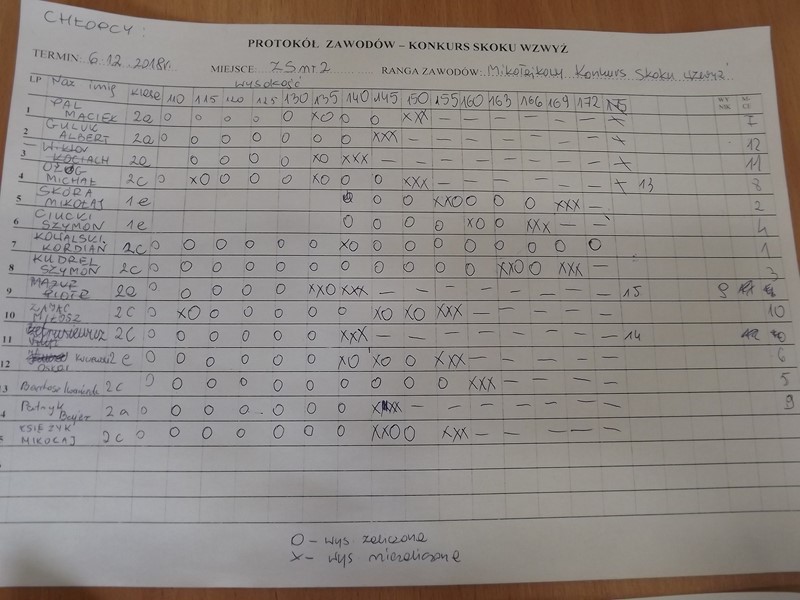 CHŁOPCY:
PROTOKÓŁ ZAWODÓW – KONKURS SKOKU WZWYŻ
TERMIN: 6.12.2018r. MIEJSCE ZS nr 2 RANGA ZAWODÓW: Mikołajkowy Konkurs skoku wzwyż
wysokość
LP Naz imię klasa 110 115 120 125 130 135 140 145 150 155 160 163 166 169 172 175 WYNIK M-CE
1 PAL MACIEK 2a O O O O O XO O O XXX — — — — — — X 7
2 ALBERT 2a O O O O O O O XXX — — — — — — — X 12
3 2a O O O O XO XXX — — — — — — — — X 11
4 MICHAŁ 2c O XO O O O XO O O XXX — — — — — — X 13 8
5 SKÓRA MIKOŁAJ 1e O O O XXO O O O XXX — 2
6 CIUCKI SZYMON 1e O O O O XO O XXX — — 4
7 KOWALSKI KORDIAN 2c O O O O O O XO O O O O O O O O 1
8 KUDREL SZYMON 2c O O O O O O O O O O O XXO O XXX — 3
9 2a O O O O O XXO XXX — — — — — — — — 15 9
10 2c O XO O O O O O XO XO XXX — — — — — 10
11 2c O O O O O O XXX — — — — — — — — 14
12 2e O O O O O O XO XO O XXX — — — — — 6
13 Bartosz 2c O O O O O O O O O O XXX — — — — 5
Patryk 2a O O O O O O O XXX — — — — — — — 9
KSIĘŻYK MIKOŁAJ 2c O O O O O O O XXO O XXX — — — — —
O – wys zaliczona
X – wys niezaliczona